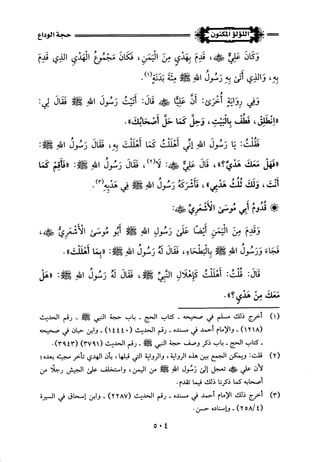 اللؤلؤ المكنون
حجة الوداع
وَكَانَ عَلِيٌّ ﷺ، قَدِمَ بِهَدْيٍ مِنَ الْيَمَنِ، فَكَانَ مَجْمُوعُ الْهَدْيِ الَّذِي قَدِمَ
بِهِ، وَالَّذِي أَتَى بِهِ رَسُولُ اللهِ ﷺ مِئَةَ بَدَنَةٍ(١).
وَفِي رِوَايَةٍ أُخْرَى: أَنَّ عَلِيًّا ﷺ قَالَ: أَتَيْتُ رَسُولَ اللهِ ﷺ فَقَالَ لِي:
«انْطَلِقْ، فَطُفْ بِالْبَيْتِ، وَحِلَّ كَمَا حَلَّ أَصْحَابُكَ».
فَقُلْتُ: يَا رَسُولَ اللهِ إِنِّي أَهْلَلْتُ كَمَا أَهْلَلْتَ بِهِ، فَقَالَ رَسُولُ اللهِ ﷺ:
«فَهَلْ مَعَكَ هَدْيٌ؟»، قَالَ عَلِيٌّ ﷺ: لَا(٢)، فَقَالَ رَسُولُ اللهِ ﷺ: «فَأَقِمْ كَمَا
أَنْتَ، وَلَكَ ثُلُثُ هَدْيِي»، فَأَشْرَكَهُ رَسُولُ اللهِ ﷺ فِي هَدْيِهِ(٣).
قُدُومُ أَبِي مُوسَى الْأَشْعَرِيِّ ﷺ:
وَقَدِمَ مِنَ الْيَمَنِ أَيْضًا عَلَى رَسُولِ اللهِ ﷺ أَبُو مُوسَى الْأَشْعَرِيُّ ﷺ،
فَجَاءَ وَرَسُولُ اللهِ ﷺ بِالْبَطْحَاءِ، فَقَالَ لَهُ رَسُولُ اللهِ ﷺ: «بِمَا أَهْلَلْتَ».
قَالَ: قُلْتُ: أَهْلَلْتُ كَإِهْلَالِ النَّبِيِّ ﷺ، فَقَالَ لَهُ رَسُولُ اللهِ ﷺ: «هَلْ
مَعَكَ مِنْ هَدْيٍ؟».
(١) أخرج ذلك مسلم في صحيحه - كتاب الحج - باب حجة النبي ﷺ - رقم الحديث
(١٢١٨) - والإمام أحمد في مسنده - رقم الحديث (١٤٤٤٠) - وابن حبان في صحيحه
- كتاب الحج - باب ذكر وصف حجة النبي ﷺ - رقم الحديث (٣٧٩١) (٣٩٤٣).
(٢) قلت: ويمكن الجمع بين هذه الرواية، والرواية التي قبلها، بأن الهدي تأخر مجيئه بعده؛
لأن علي ﷺ تعجل إلى رَسُول الله ﷺ من اليمن، واستخلف على الجيش رجلًا من
أصحابه كما ذكرنا ذلك فيما تقدم.
(٣) أخرج ذلك الإمام أحمد في مسنده - رقم الحديث (٢٢٨٧) - وابن إسحاق في السيرة
(٢٥٨/٤) - وإسناده حسن.
٥٠٤